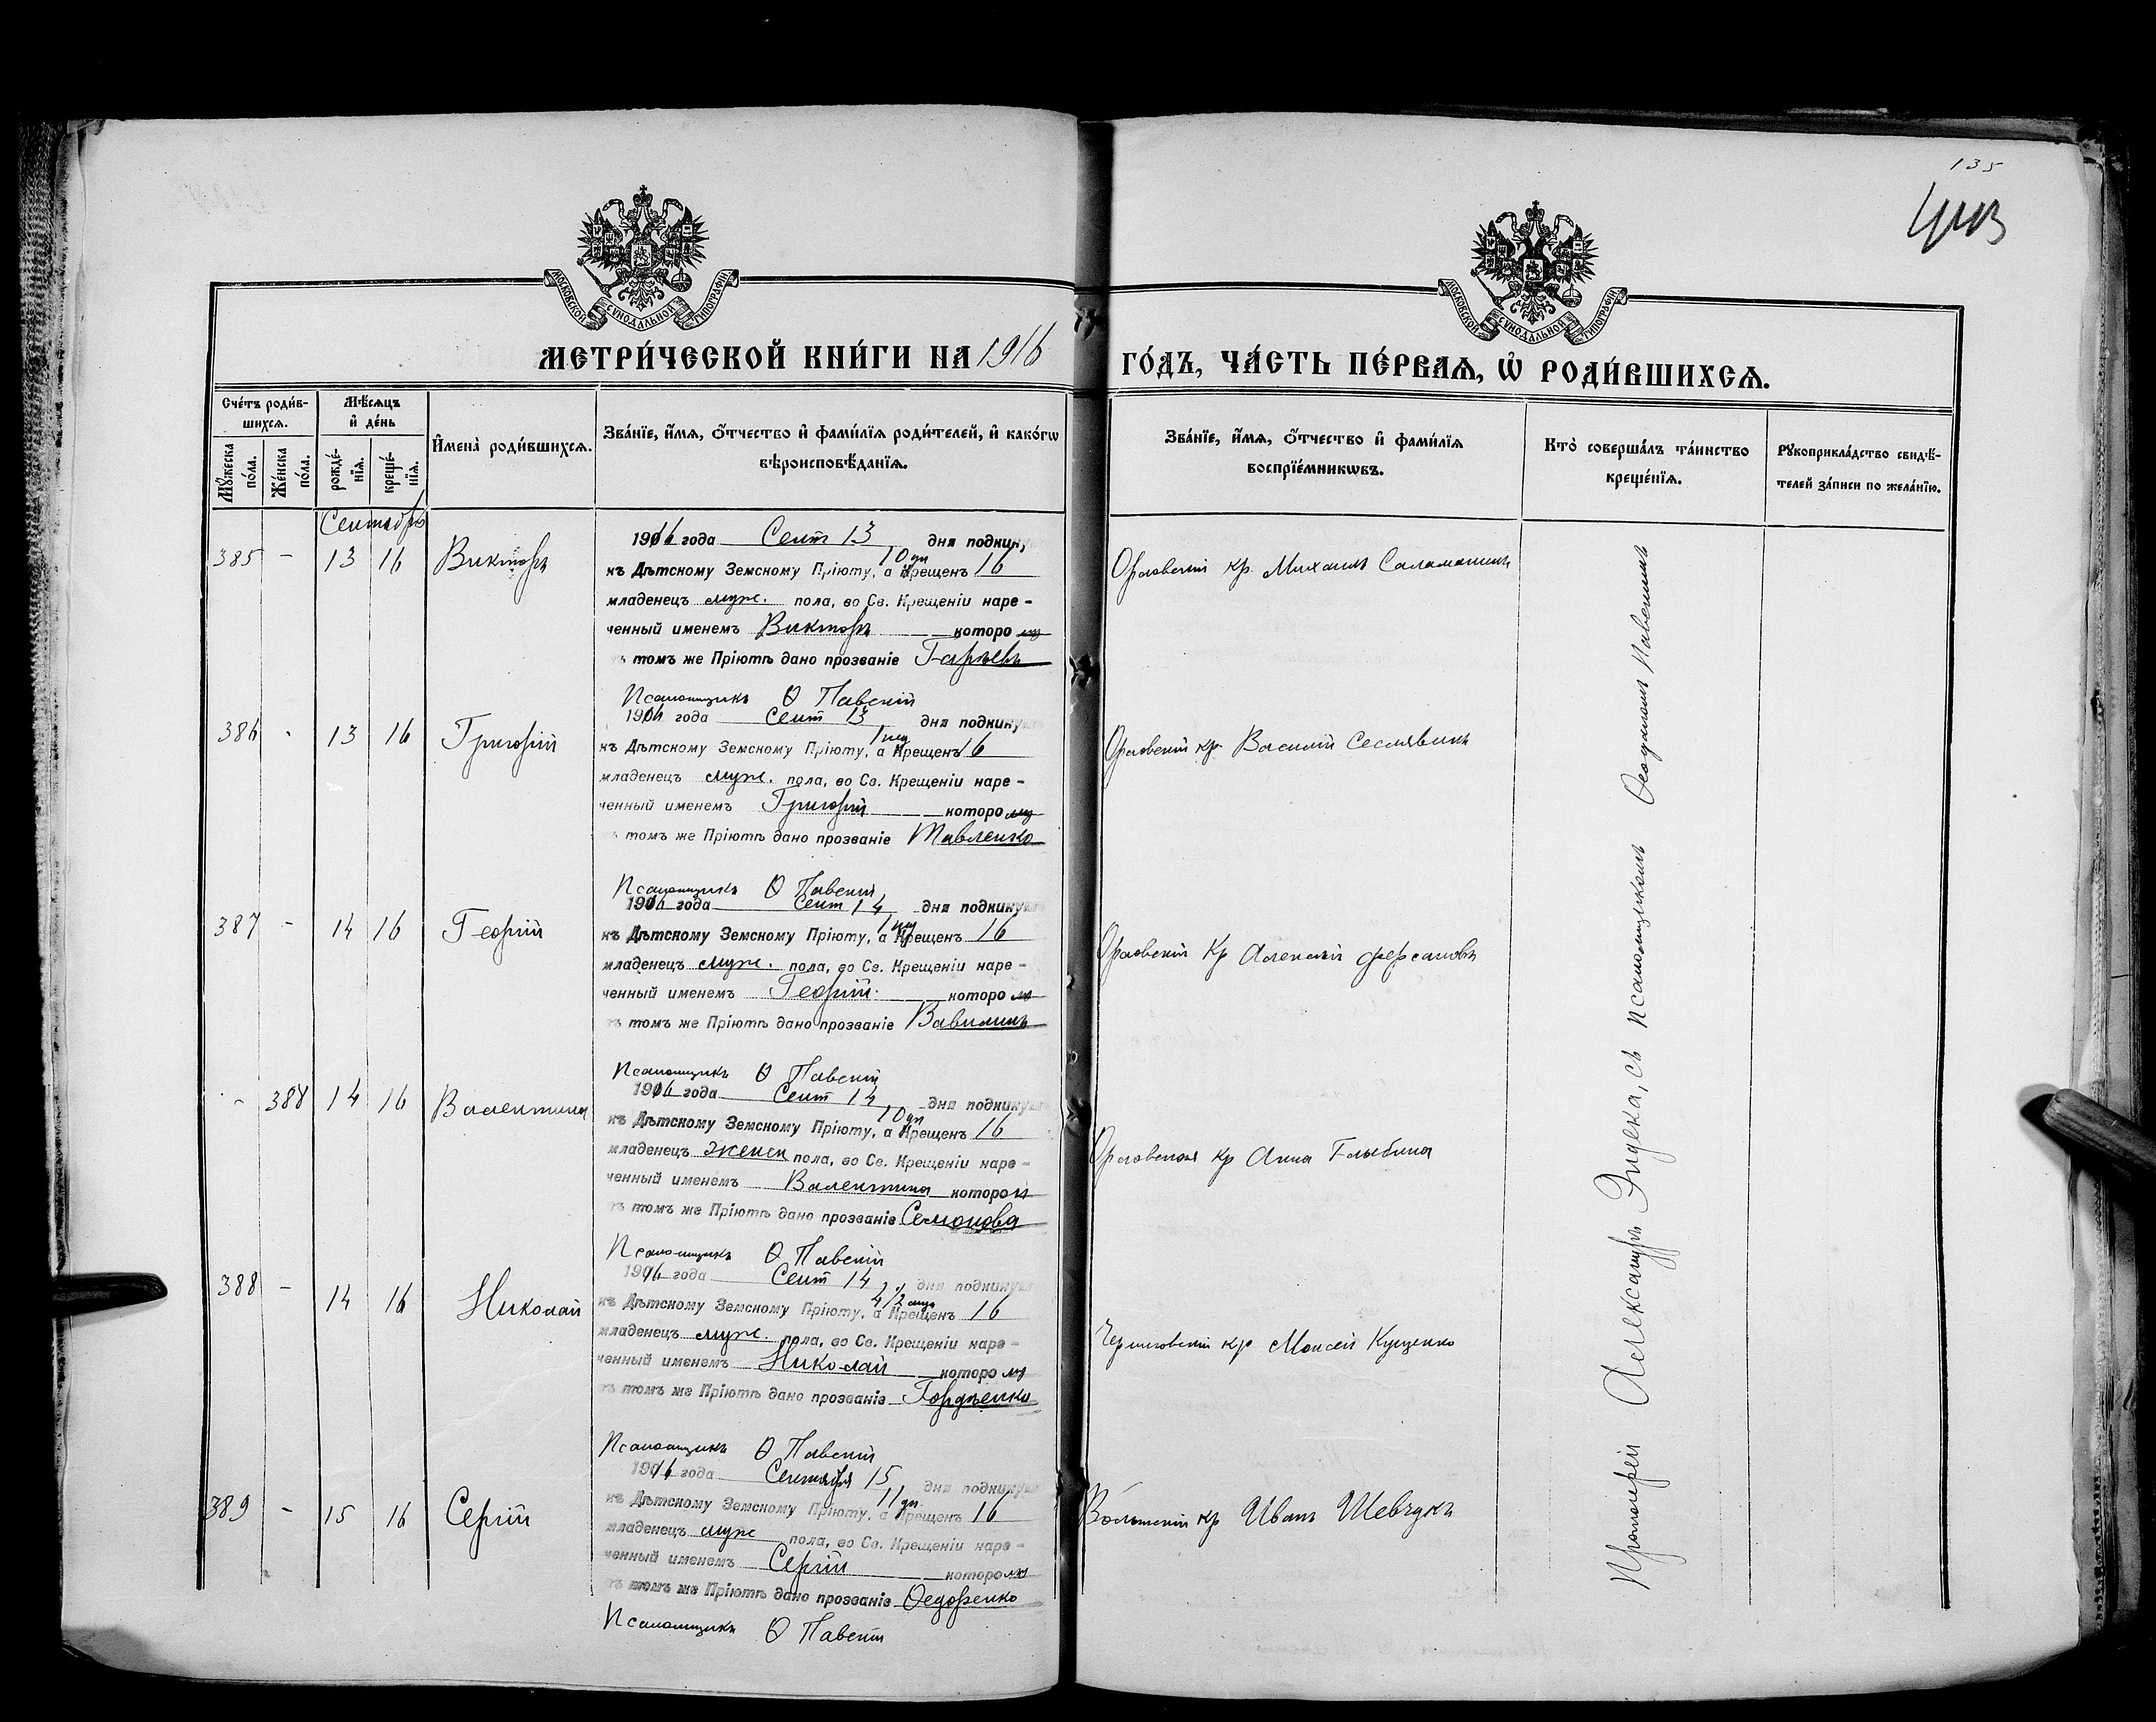 135
МОСКОВСКОЙ СУНОДАЛЬНОЙ ТИПОГРАФІИ
МОСКОВСКОЙ СУНОДАЛЬНОЙ ТИПОГРАФІИ
МЕТРИ́ЧЕСКОЙ КНИ́ГИ НА 1916
ГО́ДЪ, ЧА́СТЬ ПЕ́РВАѦ, Ѡ҆ РОДИ́ВШИХСѦ.
Сче́тъ роди́в-
шихсѧ.
Мꙋжеска по́ла.
Же́нска по́ла.
Мѣ́сѧцъ
и҆ де́нь
рожде́-
нїѧ.
креще́-
нїѧ.
И҆мена̀ роди́вшихсѧ.
Зва́нїе, и҆́мѧ, ѻ҆́тчество и҆ фами́лїѧ роди́телей, и҆ како́гѡ
вѣроисповѣ́данїѧ.
Зва́нїе, и҆́мѧ, ѻ҆́тчество и҆ фами́лїѧ
воспрїе́мникѡвъ.
Кто̀ соверша́лъ та́инство
креще́нїѧ.
Рꙋкоприкла́дство свидѣ́-
телей за́писи по жела́нїю.
Сентябрь
385 - 13 16 Викторъ
1916 года Сент 13 дня подкину
10 дн
къ Дѣтскому Земскому Пріюту, а Крещенъ 16
младенецъ муж. пола, во Св. Крещеніи наре -
ченный именемъ Викторъ которо му
томъ же Пріютѣ дано прозваніе
Псаломщикъ Ѳ Павскій
Орловскій кр. Михаилъ Саламатинъ
386 - 13 16 Григорій
1916 года Сент 13 дня подкину
къ Дѣтскому Земскому Пріюту, а Крещенъ 16
младенецъ муж. пола, во Св. Крещеніи наре -
ченный именемъ Григорій которо му
томъ же Пріютѣ дано прозваніе Павленко
Псаломщикъ Ѳ Павскій
Орловскій кр. Василій Сеславинъ
387 - 14 16 Георгій
1916 года Сент 14 дня подкину
къ Дѣтскому Земскому Пріюту, а Крещенъ 16
младенецъ муж. пола, во Св. Крещеніи наре -
ченный именемъ Георгій которо му
томъ же Пріютѣ дано прозваніе Вавилинъ
Псаломщикъ Ѳ Павскій
Орловскій Кр Алексѣй Фирсановъ
- 388 14 16 Валентина
1916 года Сент 14 дня подкину
10 дн
къ Дѣтскому Земскому Пріюту, а Крещенъ 16
младенецъ женск пола, во Св. Крещеніи наре -
ченный именемъ Валентина которой
томъ же Пріютѣ дано прозваніе Семонова
Псаломщикъ Ѳ Павскій
Орловская кр Анна Глыбина
388 - 14 16 Николай
1916 года Сент 14 дня подкину
къ Дѣтскому Земскому Пріюту, а Крещенъ 16
младенецъ муж. пола, во Св. Крещеніи наре -
ченный именемъ Николай которо му
томъ же Пріютѣ дано прозваніе Гордѣенко
Псаломщикъ Ѳ Павскій
Черниговскій кр Моисей Куценко
389 - 15 16 Сергій
1916 года Сентября 15 дня подкину
11 дн.
къ Дѣтскому Земскому Пріюту, а Крещенъ 16
младенецъ муж пола, во Св. Крещеніи наре -
ченный именемъ Сергій которо му
томъ же Пріютѣ дано прозваніе Ѳедоренко
Псаломщикъ Ѳ Павскій
Волынскій кр Иванъ Шевчукъ
Протоіерей Александръ Эндека, съ псаломщикомъ Ѳеодоромъ Павскимъ